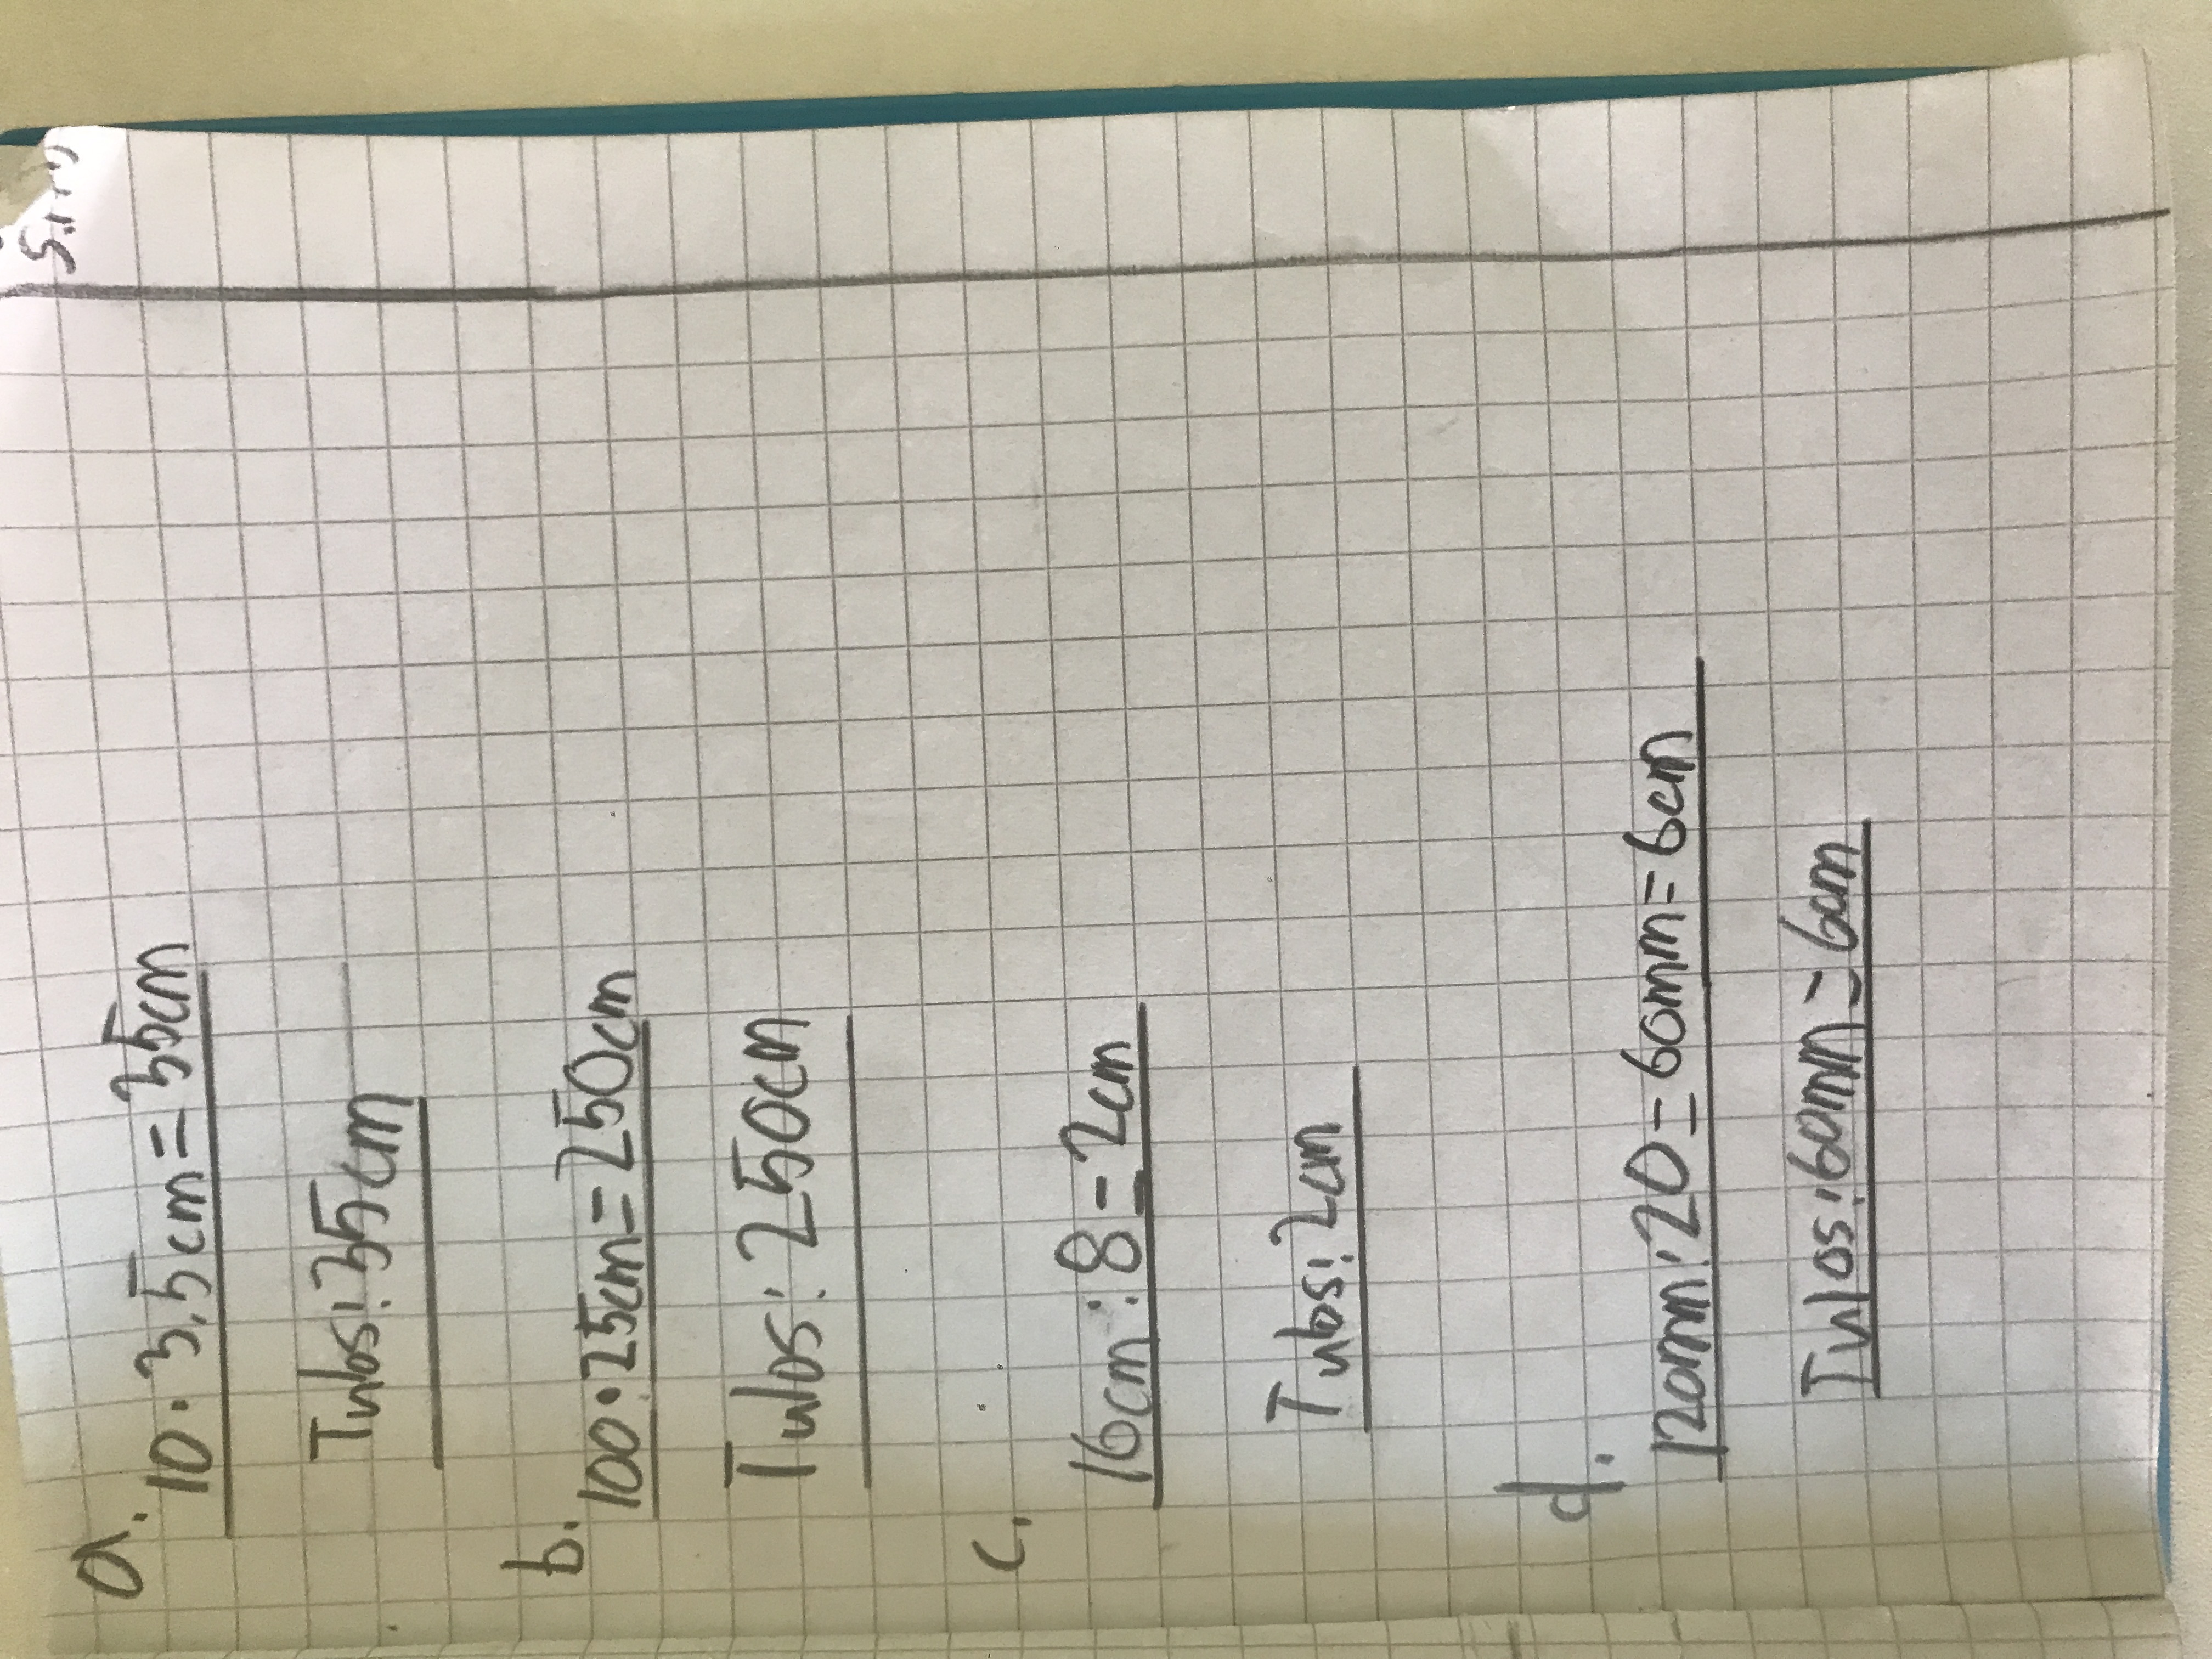 a.
10 · 3,5cm = 35cm
Tulos: 35cm
b.
100 · 25cm = 250cm
Tulos: 250cm
c.
16cm : 8 = 2cm
Tulos: 2cm
d.
120mm : 20 = 60mm = 6cm
Tulos: 60mm = 6cm